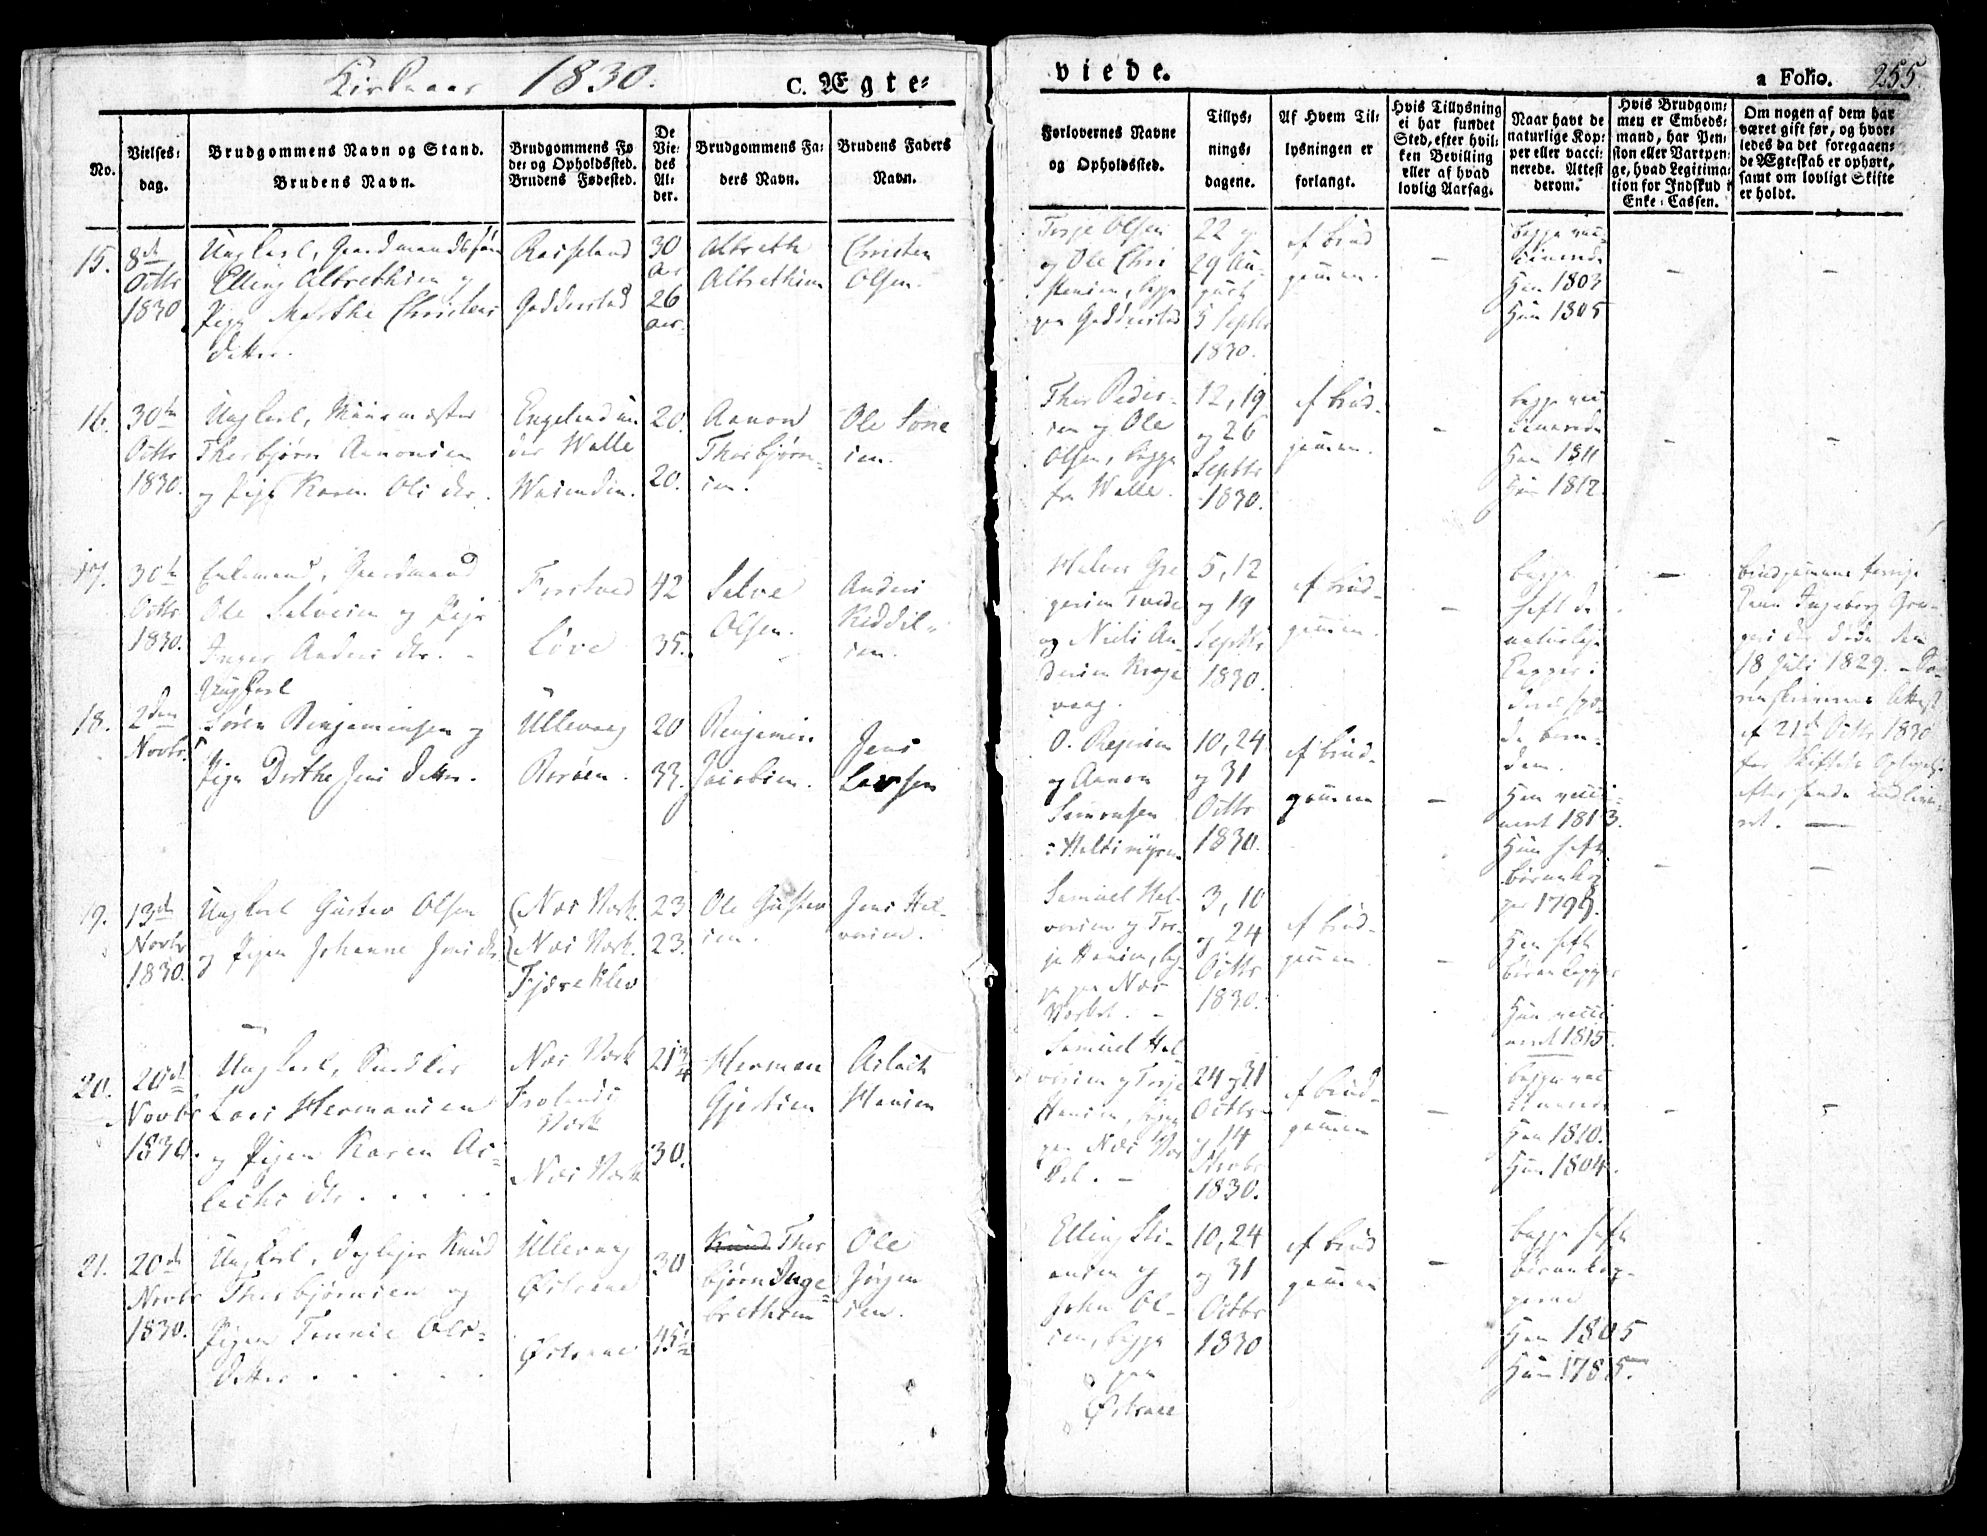 Kirkeaar 1830.
C. Ægte-
viede.
a Folio. 255.
No.
Vielses-
dag.
Brudgommens Navn og Stand.
Brudens Navn.
Brudgommens Fø
de- og Opholdssted.
Brudens Fødested.
De
Vie-
des
Al-
der.
Brudgommens Fa-
ders Navn.
Brudens Faders
Navn.
Forlovernes Navne
og Opholdssted.
Tillys-
nings-
dagene.
Af Hvem Til-
lysningen er
forlangt.
Hvis Tillysning
ei har fundet
Sted, efter hvil-
ken Bevilling
eller af hvad
lovlig Aarsag.
Naar havt de
naturlige Kop-
per eller vacci-
nerede. Attest
derom.
Hvis Brudgom-
men er Embeds-
mand, har Pen-
sion eller Vartpen-
ge, hvad Legitima-
tion for Indskud i
Enke-Cassen.
Om nogen af dem har
været gift før, og hvor-
ledes da det foregaaen-
de Ægteskab er ophørt,
samt om lovligt Skifte
er holdt.
15.
8de
Octbr
1830
Ungkarl, Gaardmandssøn
Elling Albrethsen og
Pige Marthe Christens
datter.
Godderstad
30
aar
26
aar.
Albreth
Albrethsen
Christen
Olsen.
Torje Olsen
og Ole Chri
stensen, begge
paa Godderstad
22 og
29 Au-
gust
5 Septbr
1830.
af Brud
gommen.
–
begge vac-
cinerede
Han 1803
Hun 1805
–
–
16.
30te
Octbr
1830.
Ungkarl, Muurmester
Thorbjørn Aanonsen
og Pige Karen Ols dtr.
Engelund un
der Walle
20.
20.
Aanon
Thorbjørn-
sen.
Ole
sen.
Thor Peder-
sen og Ole
Olsen, begge
fra Walle.
12, 19
og 26
Septbr
1830.
af Brud-
gommen.
–
begge vac
cinerede
Han 1811
Hun 1812.
–
–
17.
30te
Octbr
1830.
Enkemand, Gaardmand
Ole Salvesen og Pige
Inger Anders dtr. -
Løve
42
35.
Salve
Olsen.
Anders
Keddel-
sen.
Halvor Gre
gersen Tvede
og Niels An-
dersen
vaag.
5, 12
og 19
Septbr
1830.
af Brud-
gommen.
–
begge
haft de
naturlige
Kopper i
–
Brudgommens forrige
Kone Ingeborg Gre-
gers dtr døde den
18 Juli 1829. -
af 21de Octbr 1830
for Skiftets
18.
2den
Novbr.
Ungkarl
Søren Benjaminsen og
Pige Dorthe Jens datter.
Ullevaag
20
33.
Benjamin
Jacobsen.
Jens
Larsen
og Aanon
Simonsen
10, 24
og 31
Octbr
1830.
af Brud-
gommen
–
Han vacci-
neret 1813.
Hun haft
–
–
19.
13de
Novbr
1830.
Ungkarl Gustav Olsen
og Pigen Johanne Jens dtr
(Næs Værk.
(Næs Værk.
Fjæreklev
23
23.
Ole Gustav
sen.
Jens Hal-
vorsen.
Samuel Hal-
vorsen og Tor-
je Hansen, beg-
ge paa Næs
Værket. -
3, 10
og 24
Octbr
1830.
af Brud-
gommen.
–
Han haft
Hun vacci
neret 1815.
20.
20de
Novbr
1830.
Lars Hermansen
og Pigen Karen As-
lachs dtr. . . .
Næs Værk
Frolands
Værk
Næs Værk
21¾
30.
Herman
Gjertsen
Aslach
Hansen
Samuel Hal-
vorsen og Torje
Hansen, begge
paa Næs Vær
ket. -
24 og 31
Octbr
og 14
Novbr
1830.
af Brud-
gommen
–
begge vac
cinerede
Han 1810.
Hun 1804.
–
–
21.
20de
Novbr
1830.
Ungkarl, Knud
Thorbjørnsen og
Pigen Tonnie Ols-
datter . . . .
Ullevaag
Østraae
Østraae
30
45½
Knud Thor
bjørn Inge-
brethsen
Ole
Jørgen
sen.
Elling
ensen og
John Ol-
sen, begge
paa
Østraae
10, 24
og 31
Octbr
1830
af Brud
gommen
–
begge haft
Han 1805
Hun 1785.